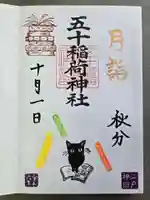 月詣
五十稲荷神社
十月一日
秋分